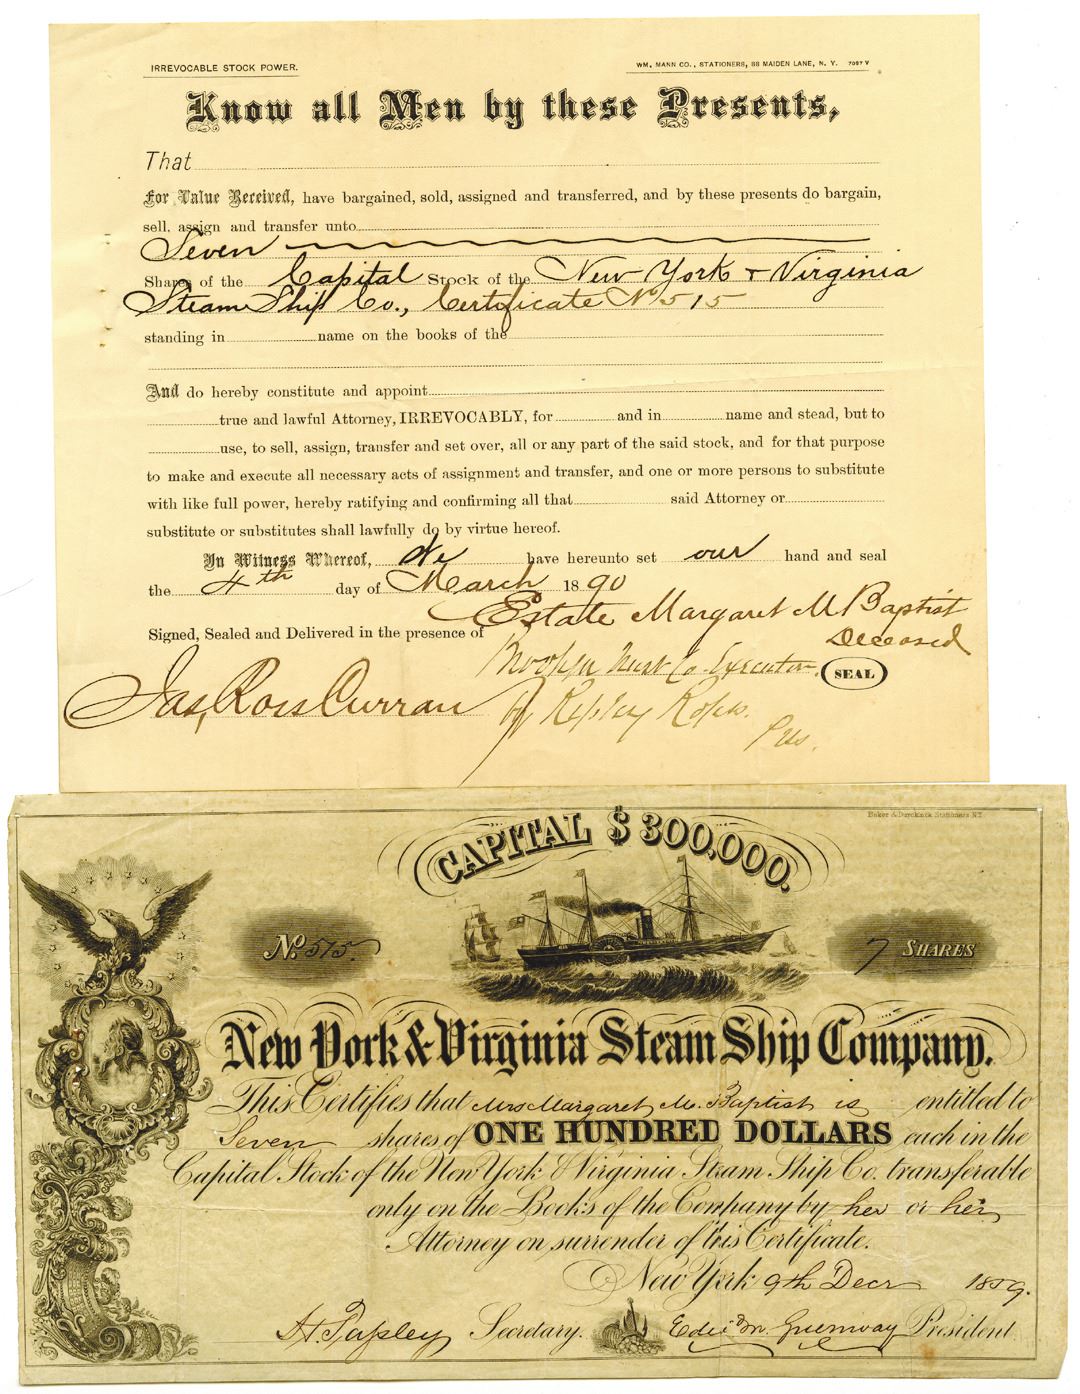 IRREVOCABLE STOCK POWER.
WM. MANN CO., STATIONERS, 88 MAIDEN LANE, N. Y. 7097 V
Know all Men by these Presents,
That
For Value Received, have bargained, sold, assigned and transferred, and by these presents do bargain,
sell, assign and transfer unto
Seven
Shares of the Capital Stock of the New York & Virginia
Steam Ship Co., Certificate No 515
standing in name on the books of the
And do hereby constitute and appoint
true and lawful Attorney, IRREVOCABLY, for and in name and stead, but to
use, to sell, assign, transfer and set over, all or any part of the said stock, and for that purpose
to make and execute all necessary acts of assignment and transfer, and one or more persons to substitute
with like full power, hereby ratifying and confirming all that said Attorney or
substitute or substitutes shall lawfully do by virtue hereof.
In Witness Whereof, We have hereunto set our hand and seal
the 4th day of March 1890
Estate Margaret M Baptist
Deceased
Signed, Sealed and Delivered in the presence of
Brooklyn Trust Co Executor SEAL
Jas, Ross Curran
by Ripley Ropes.
Pres.
Baker & Duyckinck Stationers N.Y.
CAPITAL $300,000.
No. 515.
7 SHARES
New York & Virginia Steam Ship Company.
This Certifies that Mrs Margaret M. Baptist is entitled to
Seven shares of ONE HUNDRED DOLLARS each in the
Capital Stock of the New York & Virginia Steam Ship Co. transferable
only on the Books of the Company by her or her
Attorney on surrender of this Certificate.
New York 9th Decr 1859.
H. Tapley Secretary. Edw. M. Greenway President